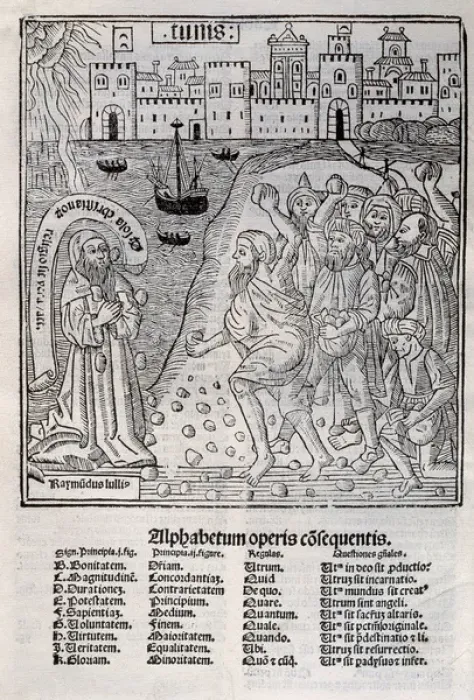 .tunis:
religio
Raymūdus lulli⁹
Alphabetum operis cōsequentis.
Sign. Principia.j.fig. Principia.ij.figure. Regulas. Questiones gńales.
B. Bonitatem. Dr̄iam. Utrum. Utꝝ in deo sit ꝓductio?
C. Magnitudinē. Concordantiaꝫ. Quid Utruꝫ sit incarnatio.
D. Durationeꝫ. Contrarietatem De quo. Utꝝ mundus sit creat⁹
E. Potestatem. Principium. Quare. Utrum sint angeli.
F. Sapientiaꝫ. Medium. Quantum. Utꝝ sit altaris.
G. Uoluntatem. Finem. Quale. Utꝝ sit originale.
H. Uirtutem. Maioritatem. Quando. Utꝝ sit p̄destinatio ⁊ li.
I. Ueritatem. Equalitatem. Ubi. Utruꝫ sit resurrectio.
K. Gloriam. Minoritatem. Quō ⁊ cūꝯ. Utꝝ sit padysus ⁊ infer.